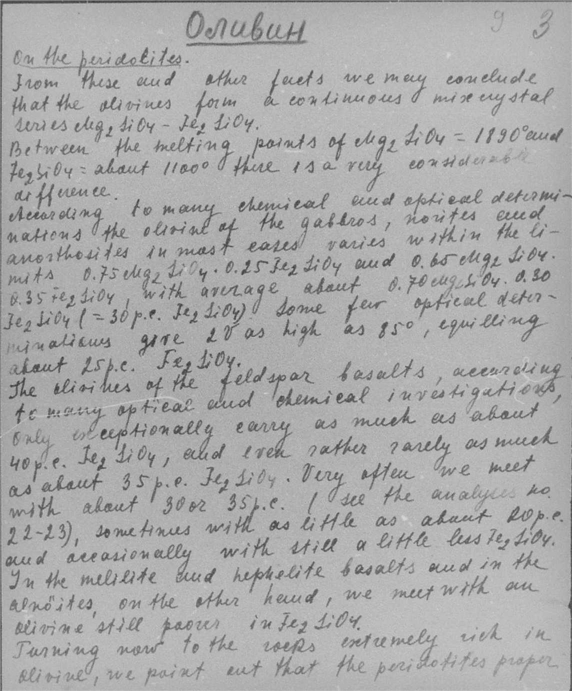 Оливин
9 3
On the peridotites.
From these and other facts we may conclude
that the olivines form a continuous mixcrystal
series Mg2 SiO4 - Fe2 SiO4.
Between the melting points of Mg2 SiO4 = 1890° and
Fe2SiO4 = about 1100° there is a very considerable
difference.
According to many chemical and optical determi-
nations the olivine of the gabbros, norites and
anorthosites in most cases varies within the li-
mits 0.75Mg2 SiO4. 0.25Fe2 SiO4 and 0.65 Mg2 SiO4.
0.35 Fe2 SiO4, with average about 0.70Mg2SiO4. 0.30
Fe2SiO4 (= 30 p.c. Fe2 SiO4) Some few optical deter-
minations give 2V as high as 85°, equilling
about 25p.c. Fe2 SiO4.
The olivines of the feldspar basalts, according
to many optical and chemical investigations,
only exceptionally carry as much as about
40p.c. Fe2 SiO4, and even rather rarely as much
as about 35 p.c. Fe2 SiO4. Very often we meet
with about 30 or 35p.c. (see the analyses no.
22-23), sometimes with as little as about 20 p.c.
and occasionally with still a little less Fe2SiO4.
In the melilite and nephelite basalts and in the
alnöites, on the other hand, we meet with an
olivine still poorer in Fe2 SiO4.
Turning now to the rocks extremely rich in
olivine, we point out that the peridotites proper